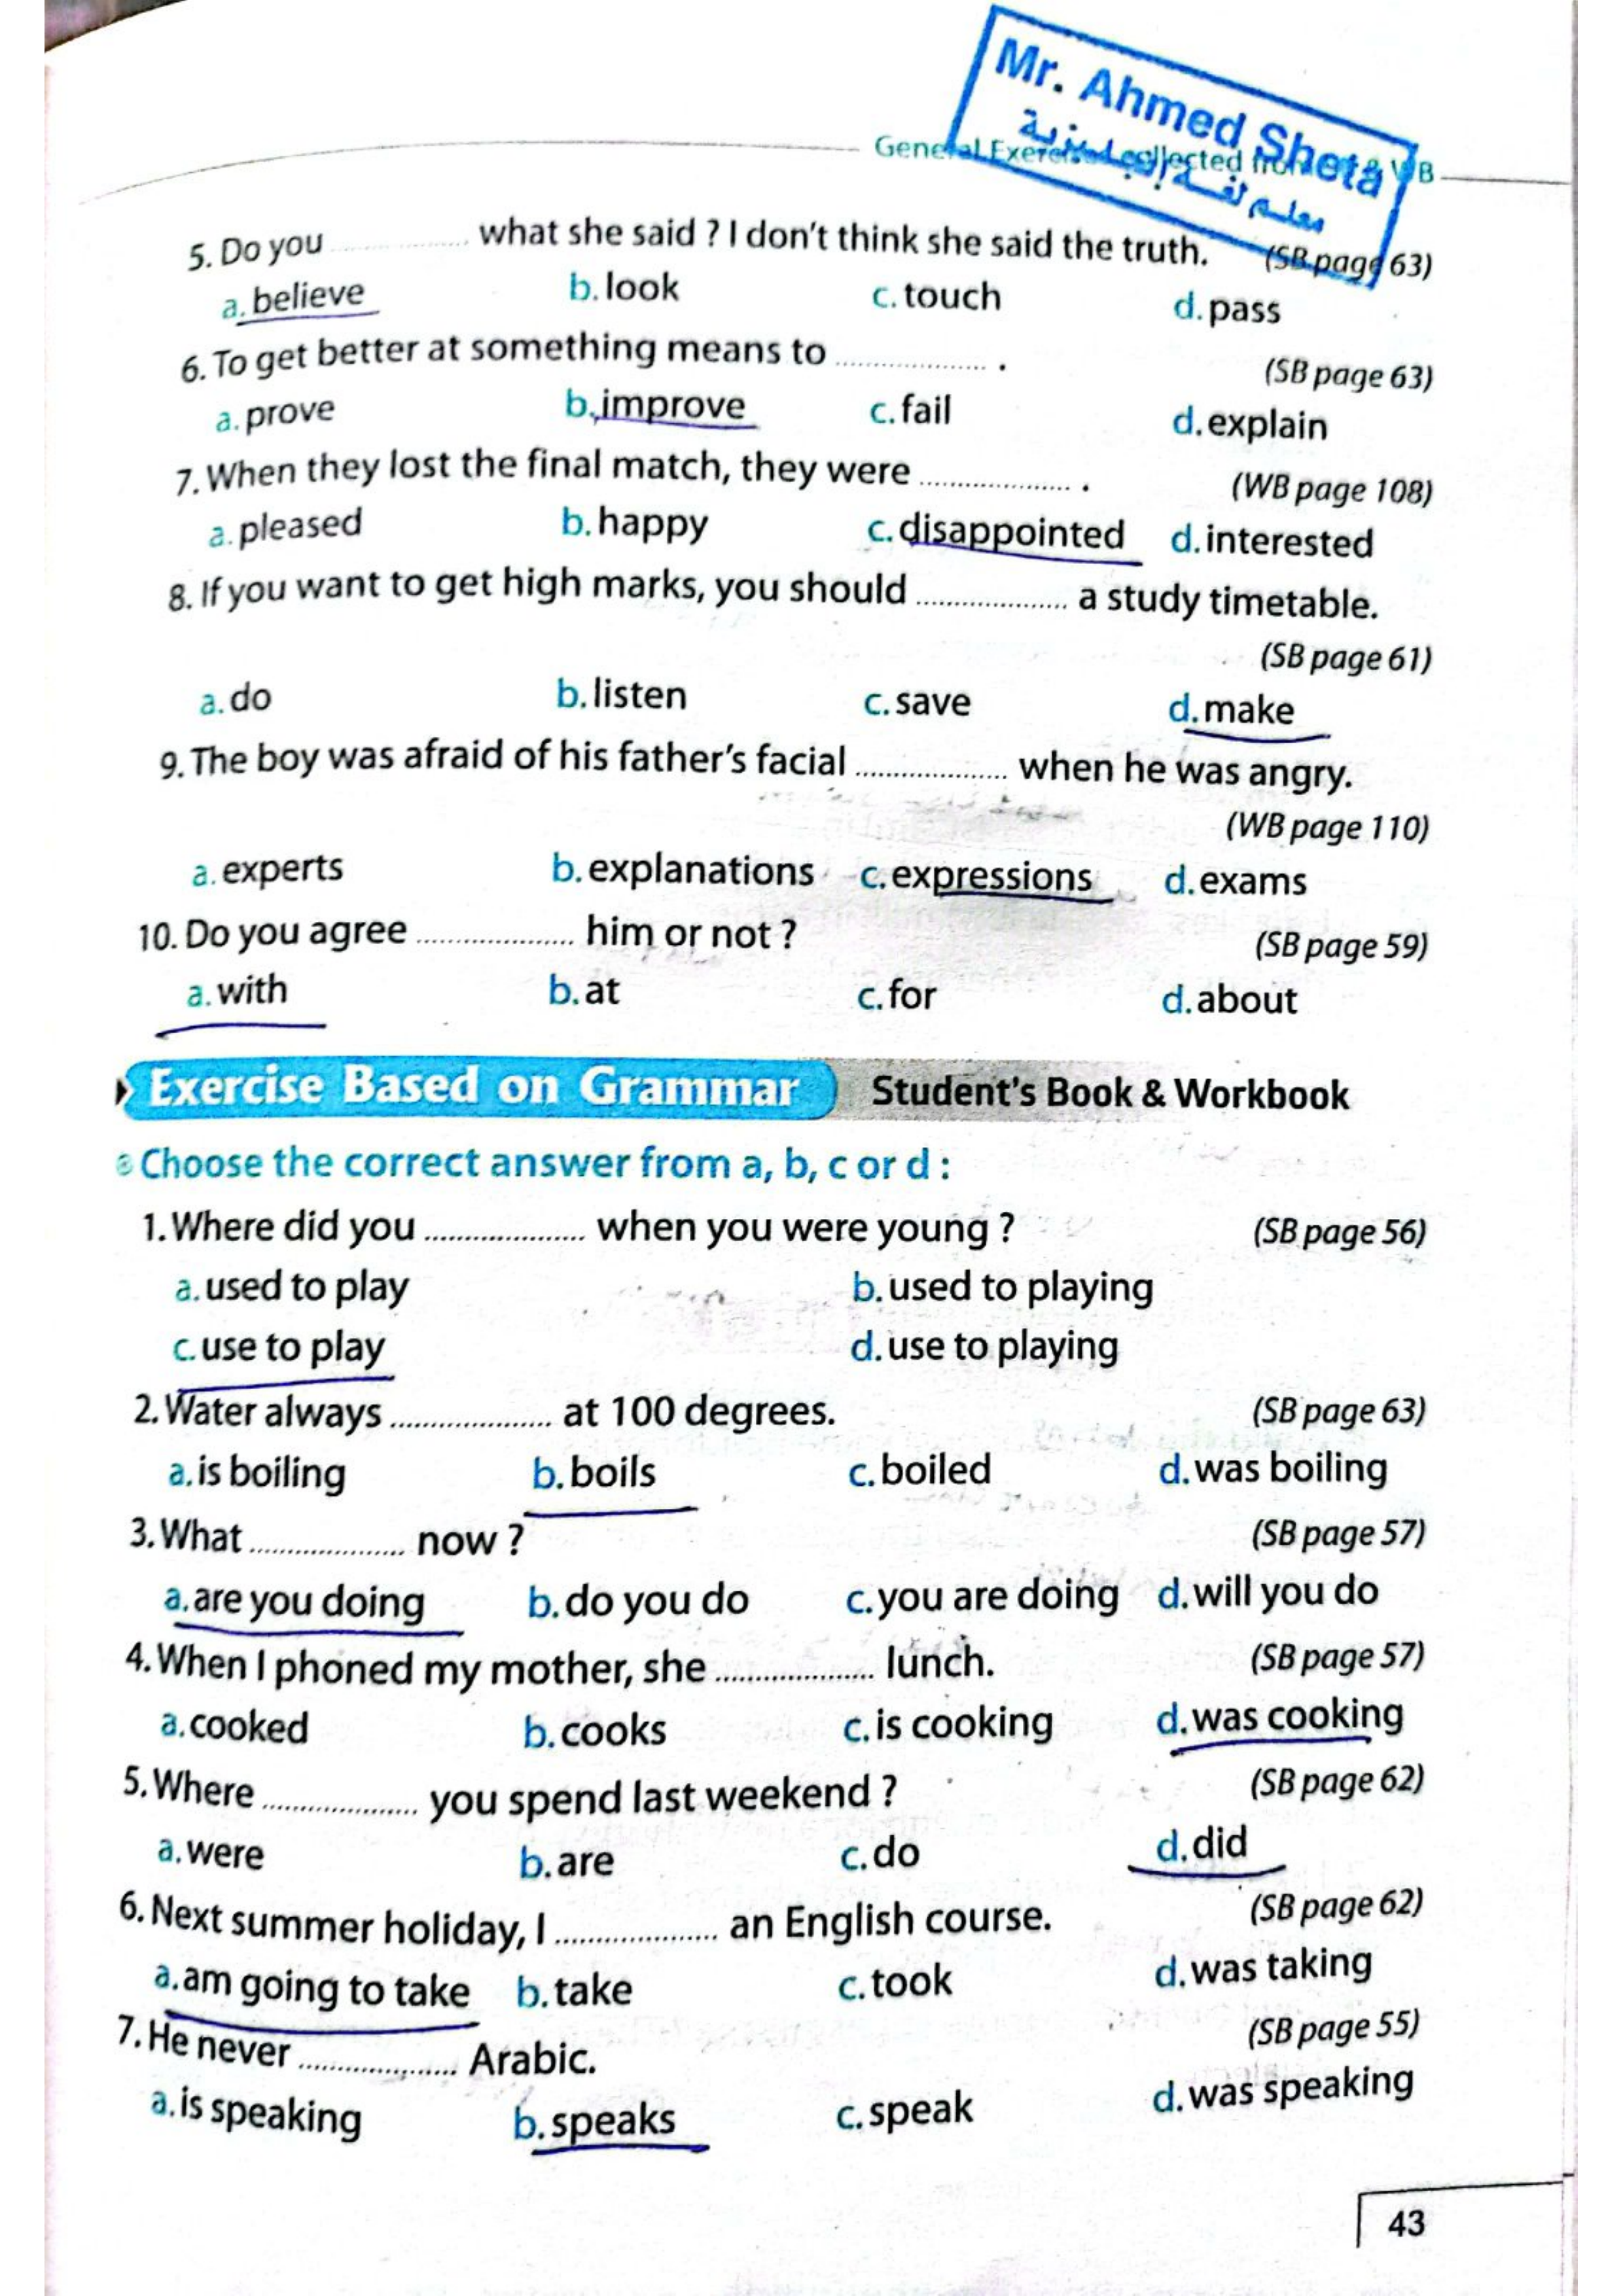 Mr. Ahmed Sheta
معلم لغة إنجليزية
General Exercises collected from SB & WB
5. Do you .................. what she said ? I don't think she said the truth. (SB page 63)
a. believe b. look c. touch d. pass
6. To get better at something means to .................. . (SB page 63)
a. prove b. improve c. fail d. explain
7. When they lost the final match, they were .................. . (WB page 108)
a. pleased b. happy c. disappointed d. interested
8. If you want to get high marks, you should .................. a study timetable.
(SB page 61)
a. do b. listen c. save d. make
9. The boy was afraid of his father's facial .................. when he was angry.
(WB page 110)
a. experts b. explanations c. expressions d. exams
10. Do you agree .................. him or not ? (SB page 59)
a. with b. at c. for d. about
Exercise Based on Grammar Student's Book & Workbook
Choose the correct answer from a, b, c or d :
1. Where did you .................. when you were young ? (SB page 56)
a. used to play b. used to playing
c. use to play d. use to playing
2. Water always .................. at 100 degrees. (SB page 63)
a. is boiling b. boils c. boiled d. was boiling
3. What .................. now ? (SB page 57)
a. are you doing b. do you do c. you are doing d. will you do
4. When I phoned my mother, she .................. lunch. (SB page 57)
a. cooked b. cooks c. is cooking d. was cooking
5. Where .................. you spend last weekend ? (SB page 62)
a. were b. are c. do d. did
6. Next summer holiday, I .................. an English course. (SB page 62)
a. am going to take b. take c. took d. was taking
7. He never .................. Arabic. (SB page 55)
a. is speaking b. speaks c. speak d. was speaking
43